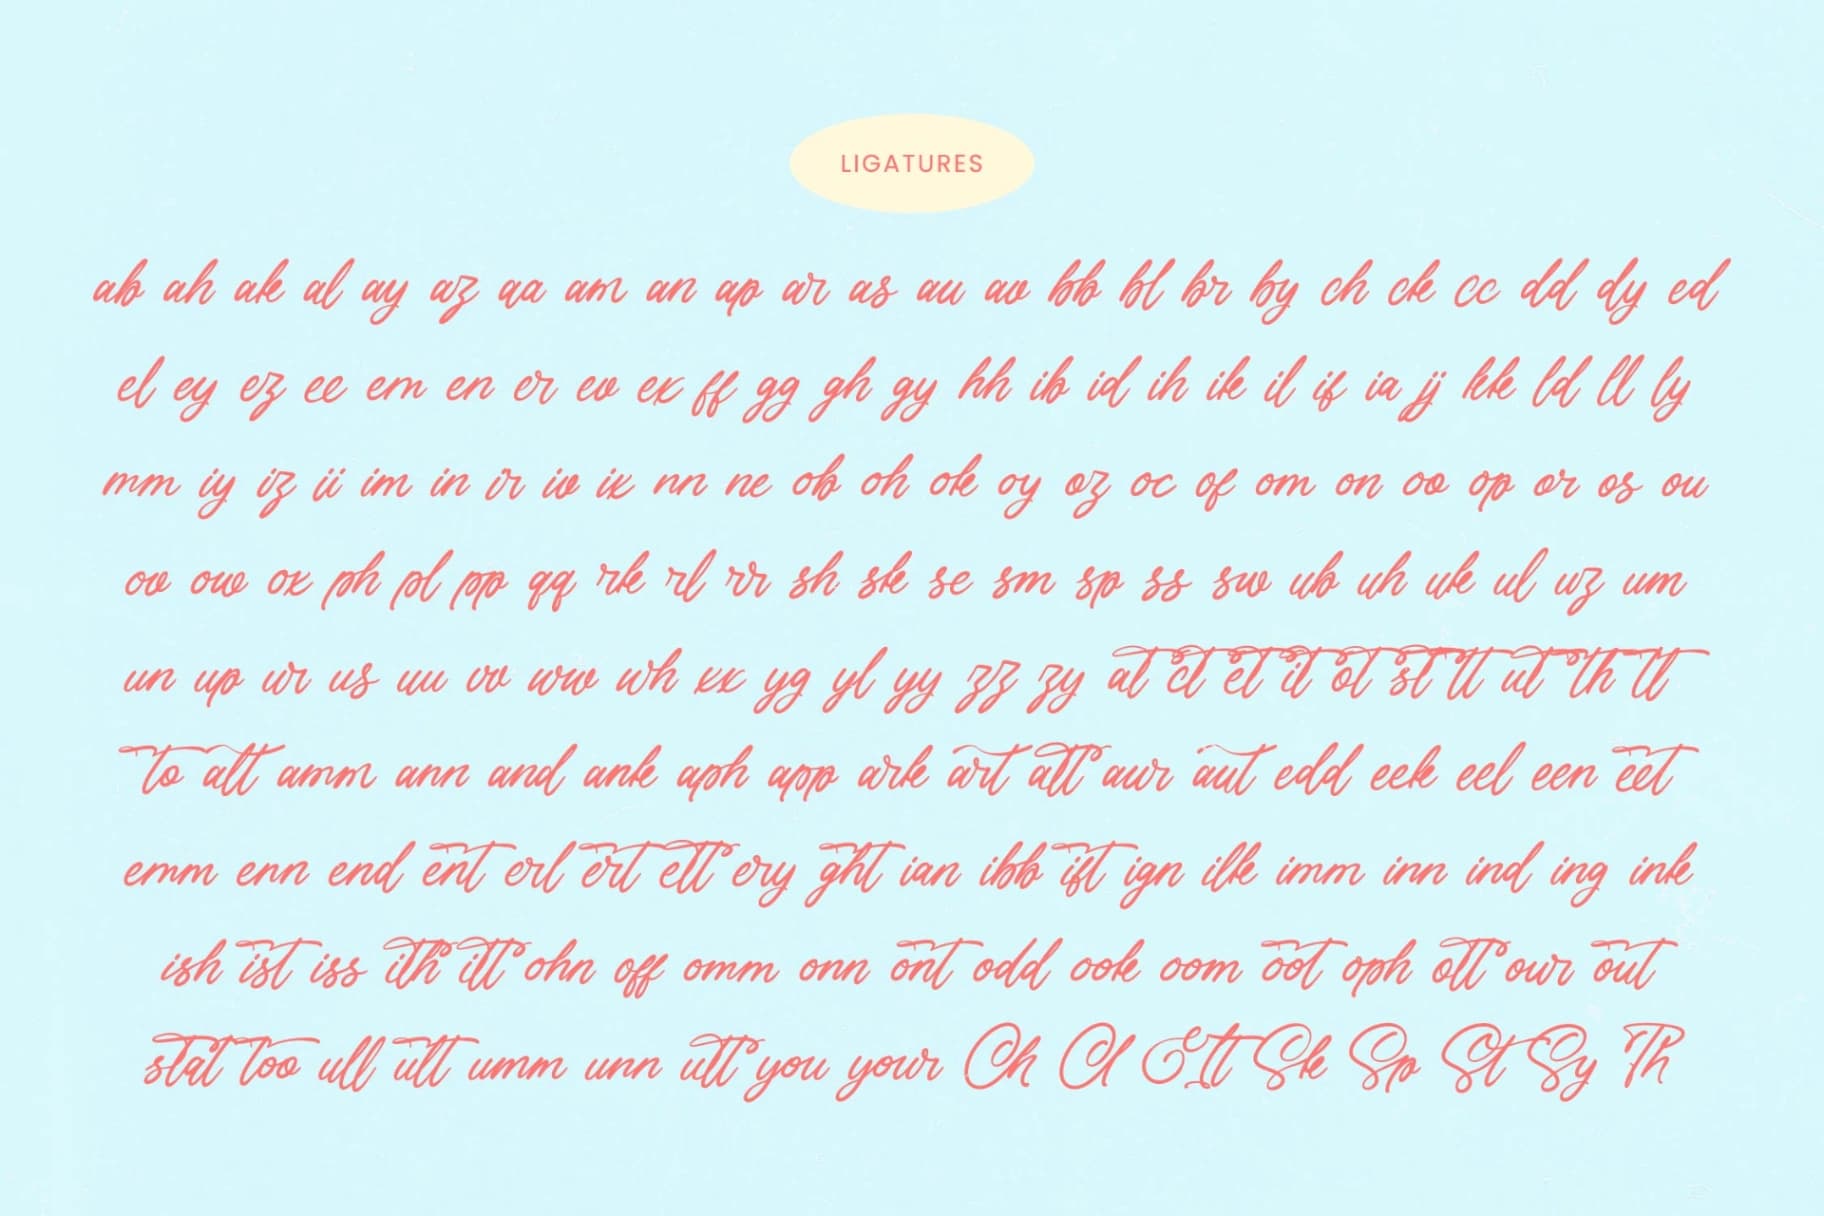 LIGATURES
ab ah ak al ay az aa am an ap ar as au av bb bl br by ch ck cc dd dy ed
el ey ez ee em en er ev ex ff gg gh gy hh ib id ih ik il if ia jj kk ld ll ly
mm iy iz ii im in ir iv ix nn ne ob oh ok oy oz oc of om on oo op or os ou
ov ow ox ph pl pp qq rk rl rr sh sk se sm sp ss sw ub uh uk ul uz um
un up ur us uu vv ww wh xx yg yl yy zz zy at ct et it ot st tt ut th tl
to alt amm ann and ank aph app ark art att aur aut edd eek eel een eet
emm enn end ent erl ert ett ery ght ian ibb ift ign ilk imm inn ind ing ink
ish ist iss ith itt ohn off omm onn ont odd ook oom oot oph ott our out
stat too ull ult umm unn utt you your Ch Cl Et It Sk Sp St Sy Th